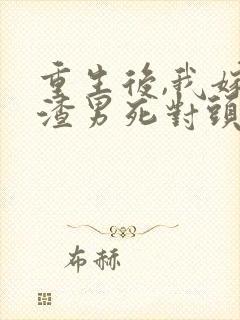 重生後,我嫁
渣男死對頭
布赫